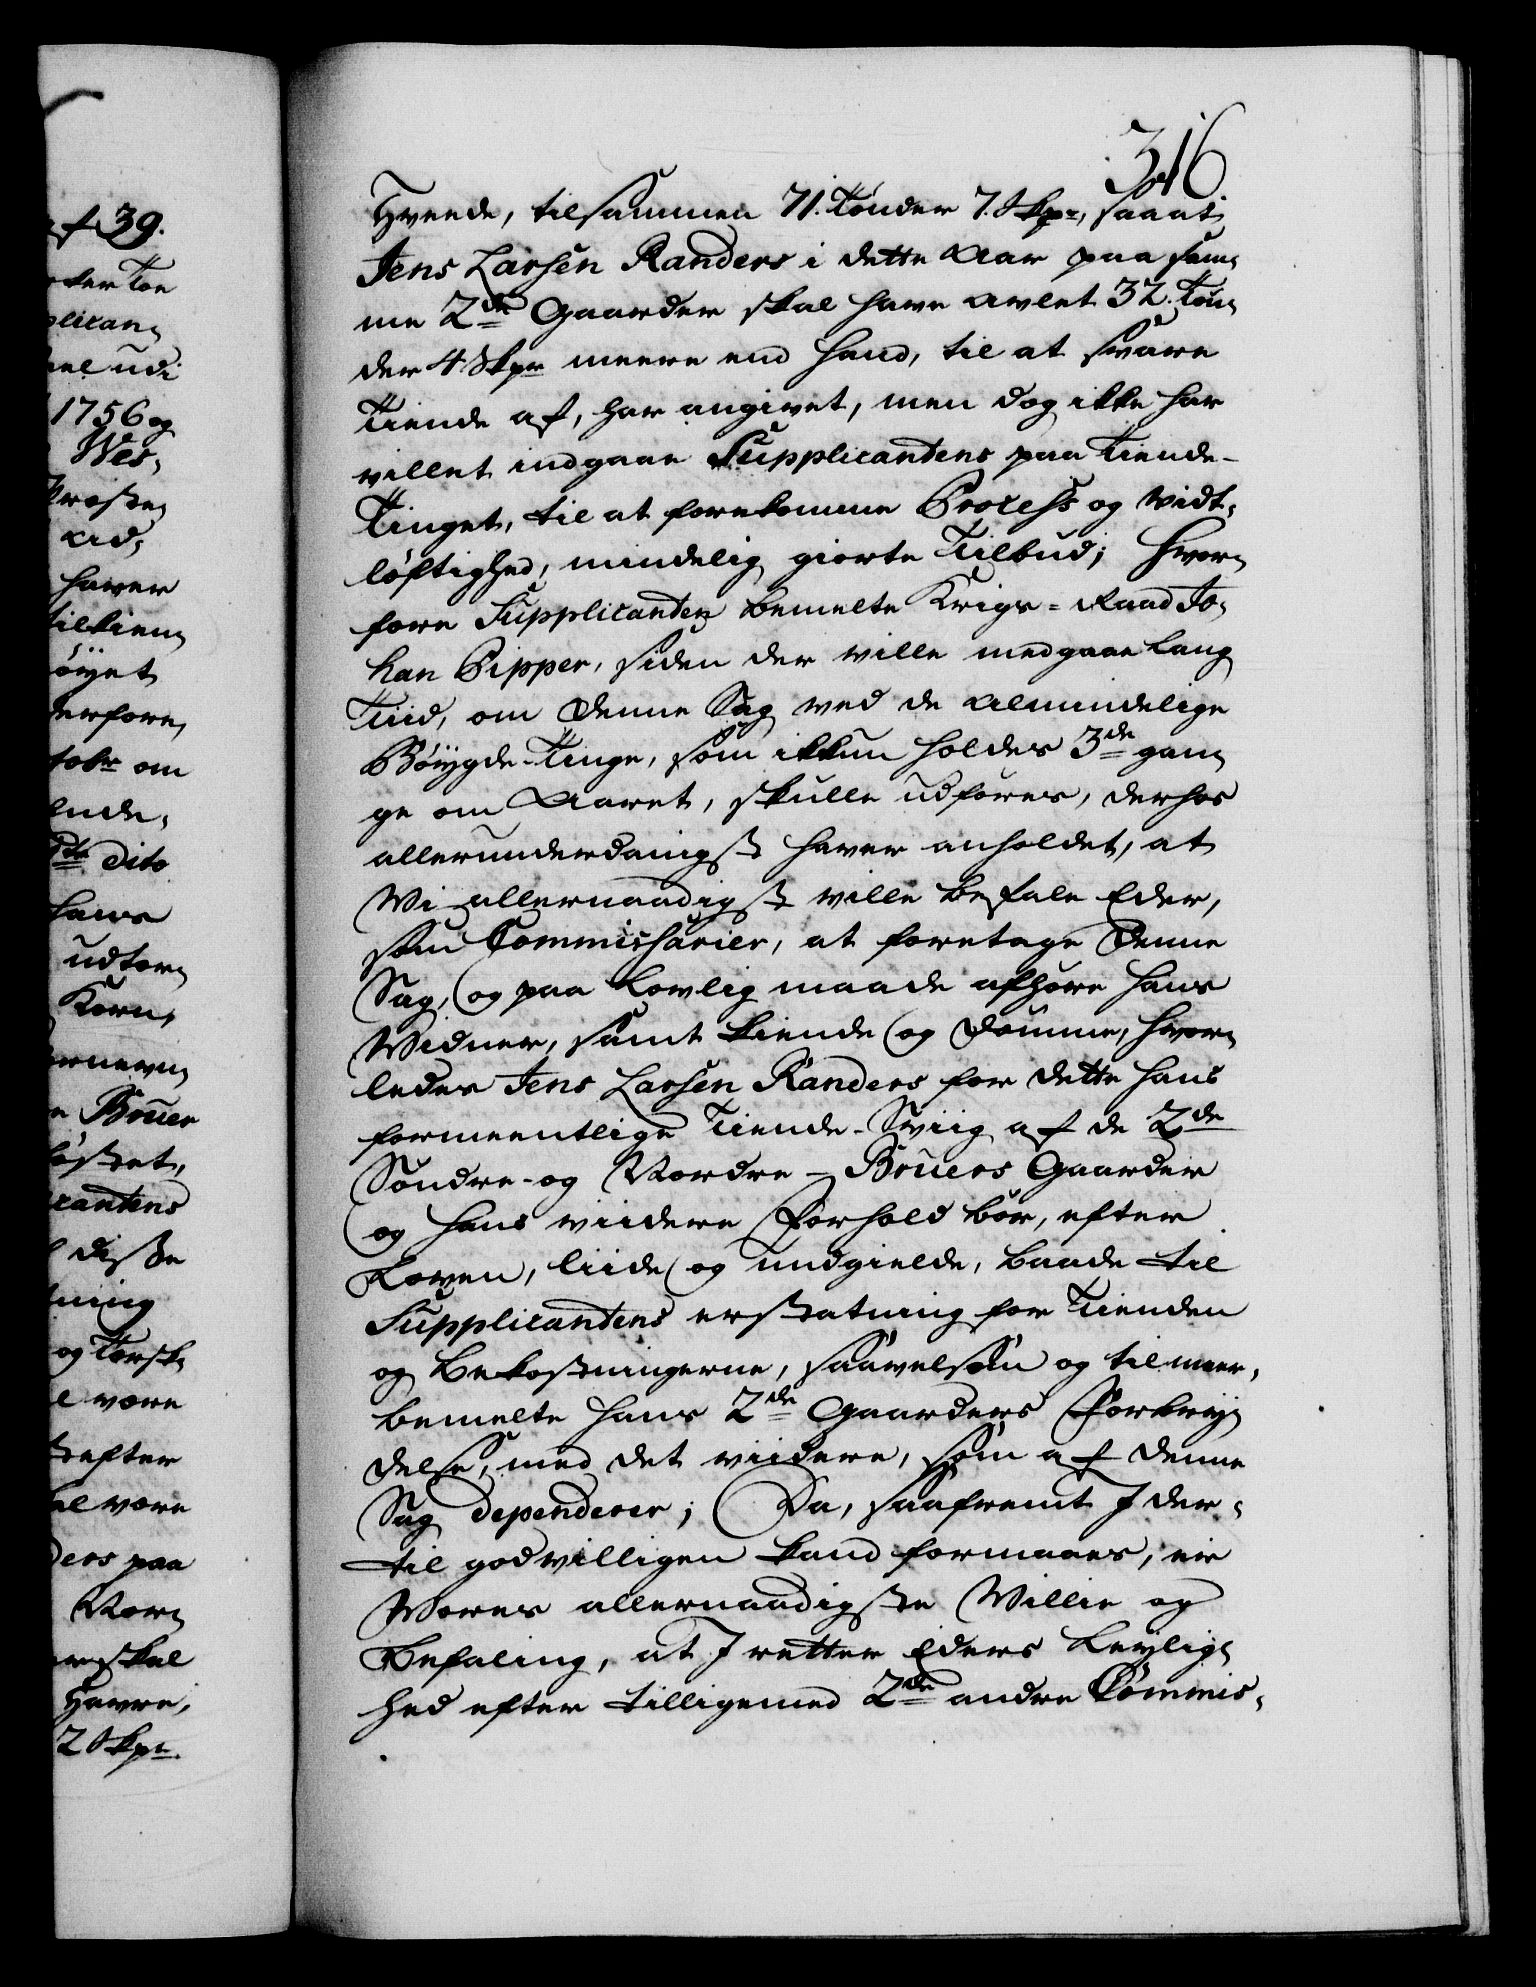 316
Hveede, tilsammen 71. Tönder 7. Skpr, saa at
Jens Larsen Randers i dette Aar paa sam¬
me 2de Gaarder skal have avlet 32. Tön¬
der 4 Skpr meere end hand, til at svare
Tiende af, har angivet, men dog ikke har
villet indgaae Supplicantens paa Tiende-
Tinget, til at forekomme Process og vidt¬
löftighed, mindelig giorte Tilbud; Hvor¬
fore Supplicanten bemelte Krigs-Raad Jo¬
han Pipper, siden der ville medgaae lang
Tiid, om denne Sag ved de almindelige
Böygde-Tinge, som ikkun holdes 3de gan¬
ge om Aaret, skulle udföres, derhos
allerunderdanigst haver anholdet, at
Wi allernaadigst ville befale Eder,
som Commissarier, at foretage denne
Sag, og paa lovlig maade afhöre hans
Widner, samt kiende og dömme, hvor¬
ledes Jens Larsen Randers for dette hans
formeentlige Tiende-Sviig af de 2de
Söndre- og Nordre-Bruers Gaarder
og hans viidere Forhold bör, efter
Loven, liide og undgielde, baade til
Supplicantens erstatning for Tienden
og Bekostningerne, saavelsom og til meer¬
bemelte hans 2de Gaarders Forbry¬
delse, med det viidere, som af denne
Sag dependerer; Da, saafremt I der¬
til godvilligen kand formaaes, er
Vores allernaadigste Willie og
Befaling, at I retter Eders Leylig¬
hed efter tilligemed 2de andre Commis¬
af 39.
udi
1756 og
Wes¬
haver
öyet
derfore,
tobr om
dito
hans
udtor¬
Korn,
Bruer
cantens
disse
ning
og Torsk¬
være
efter
være
ders paa
Nor¬
skal
Havre,
2 Skpr.